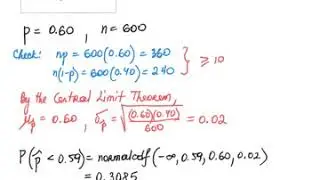 p = 0.60 , n = 600
Check: np = 600(0.60) = 360
n(1-p) = 600(0.40) = 240
≥ 10
By the Central Limit Theorem,
μp̂ = 0.60 , σp̂ = √((0.60)(0.40)/600) = 0.02
P(p̂ < 0.59) = normalcdf(-∞, 0.59, 0.60, 0.02)
= 0.3085